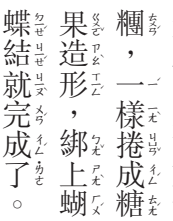 糰，一樣捲成糖
果造形，綁上蝴
蝶結就完成了。